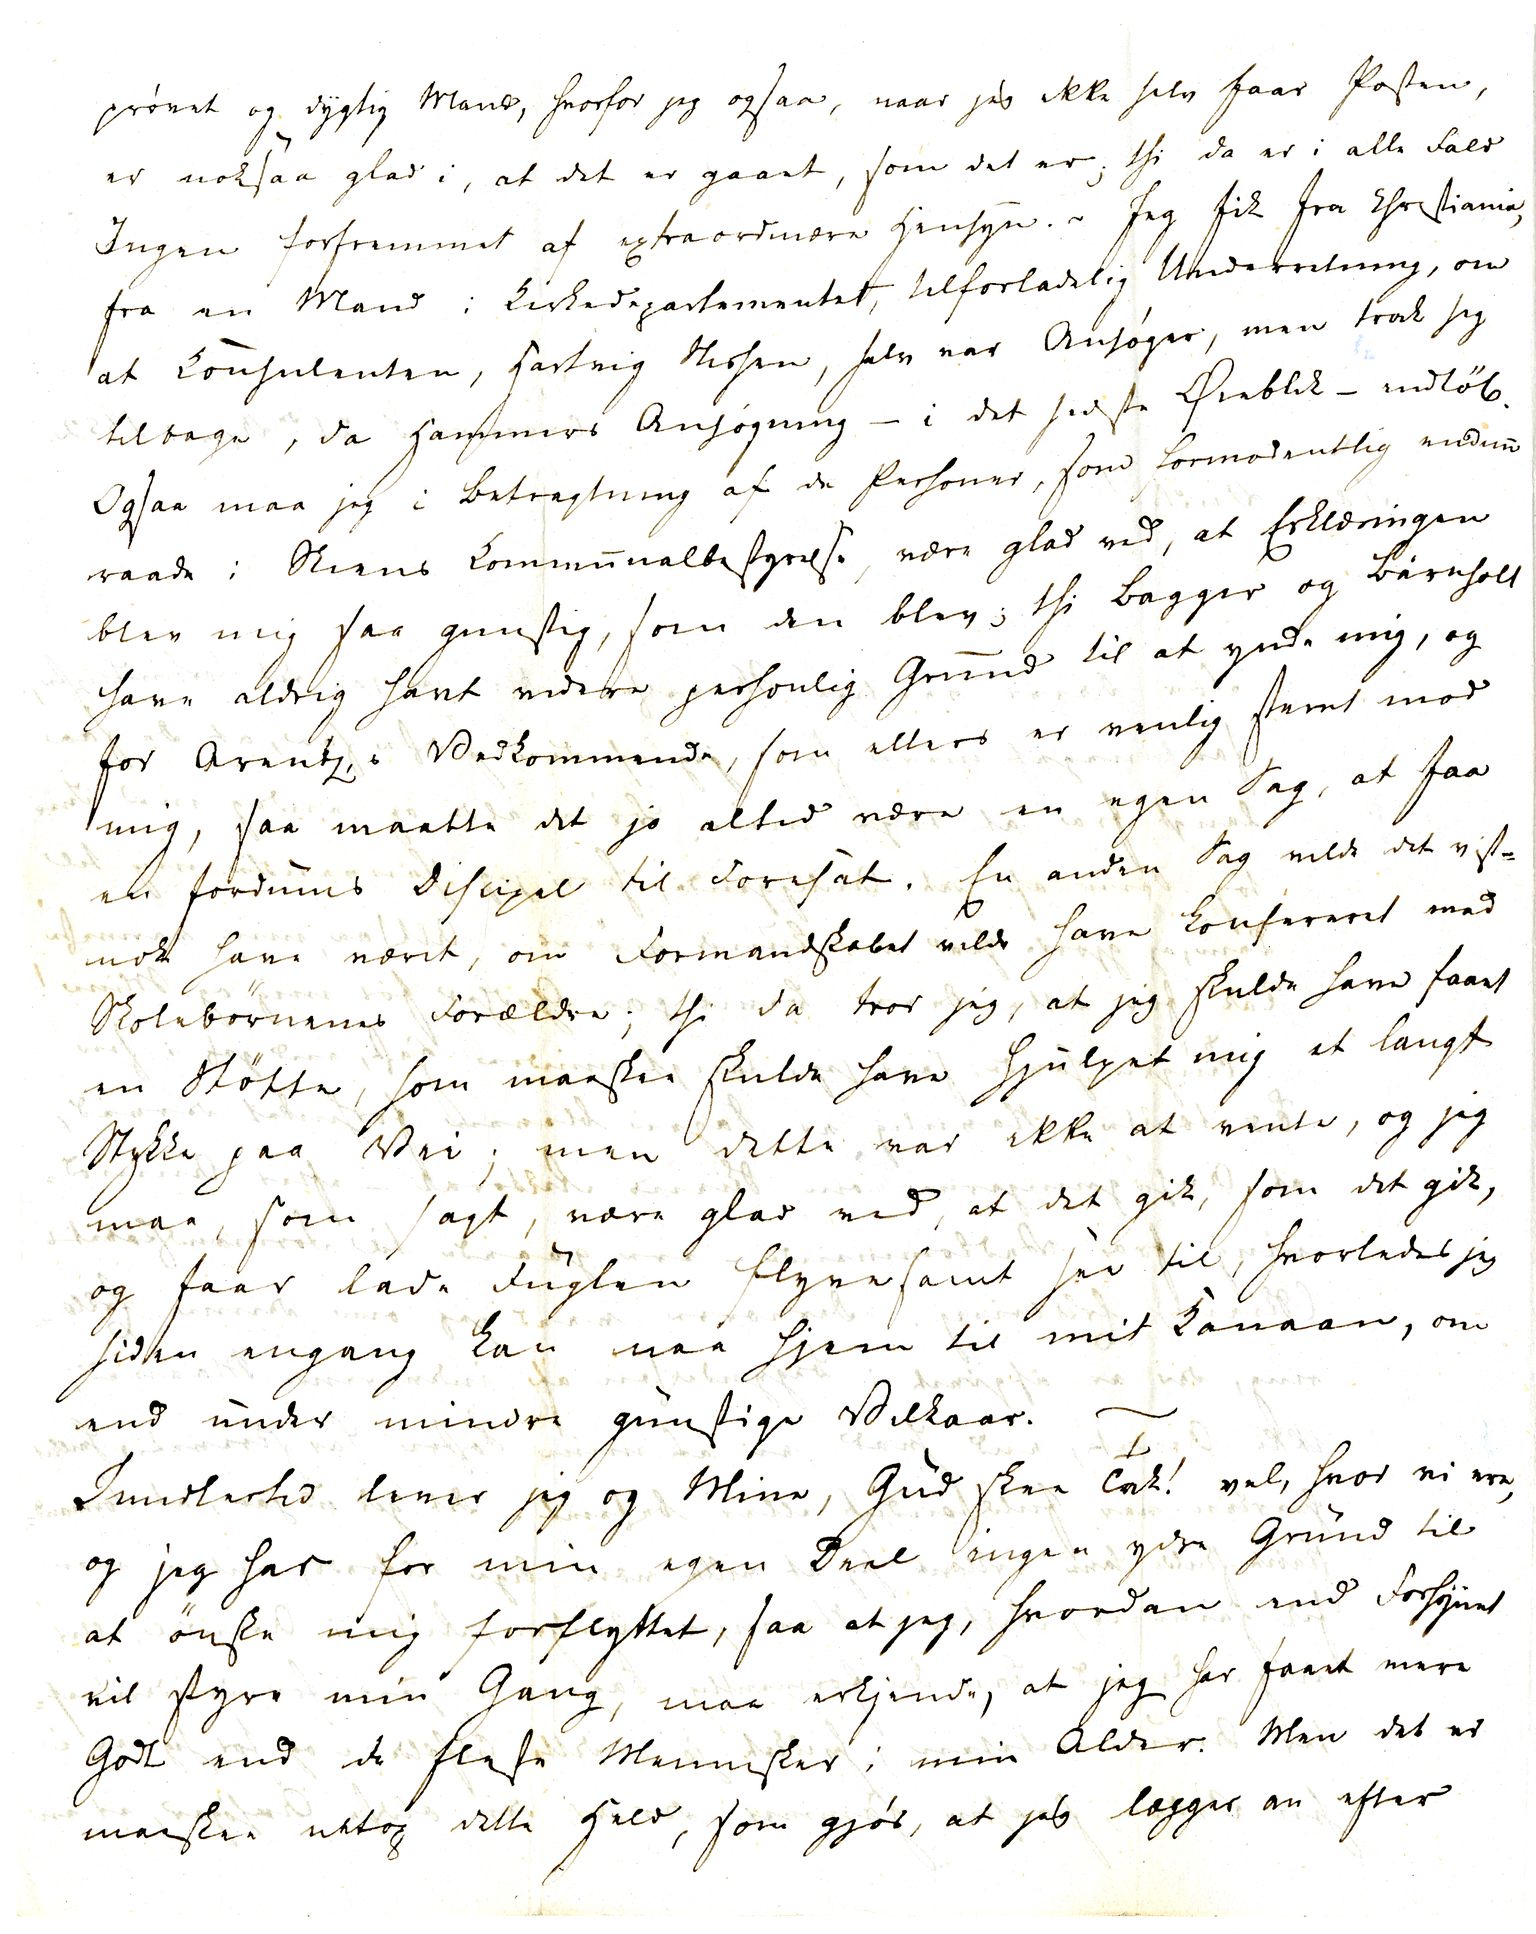 prövet og dygtig Mand, hvorfor jeg ogsaa, naar jeg ikke selv faar Posten,
er noksaa glad i, at det er gaaet, som det er; thi da er i alle Fald
Ingen forfremmet af extraordinære Hensyn. - Jeg fik fra Christiania,
fra en Mand i Kirkedepartementet, tilforladelig Underretning, om
at Konsulenten, Hartvig Nissen, selv var Ansøger, men trak sig
tilbage, da Hammers Ansøgning - i det sidste Øieblik - indløb.
Ogsaa maa jeg i Betragtning af de Personer, som formodentlig endnu
raade i Skiens Kommunalbestyrelse, være glad ved, at Erklæringen
blev mig saa gunstig, som den blev; thi Bagger og Bärnholt
have aldrig havt videre personlig Grund til at ynde mig, og
for Arentz's Vedkommende, som ellers er venlig stemt mod
mig, saa maatte det jo altid være en egen Sag, at faa
en fordums Discipel til Foresat. En anden Sag vilde det vist=
nok have været, om Formandskabet vilde have konfereret med
Skolebörnenes Forældre; thi da tror jeg, at jeg skulde have faaet
en Stötte, som maaskee skulde have hjulpet mig et langt
Stykke paa Vei; men dette var ikke at vente, og jeg
maa, som sagt, være glad ved, at det gik, som det gik,
og faar lade Fuglen flyve samt see til, hvorledes jeg
siden engang kan naa hjem til mit Kanaan, om
end under mindre gunstige Vilkaar. —
Imidlertid lever jeg og Mine, Gud skee Tak! vel, hvor vi ere,
og jeg har for min egen Deel ingen ydre Grund til
at önske mig forflyttet, saa at jeg, hvordan end Forsynet
vil styre min Gang, maa erkjende, at jeg har faaet mere
Godt end de fleste Mennesker i min Alder. Men det er
maaskee netop dette Held, som gjör, at jeg lægger an efter